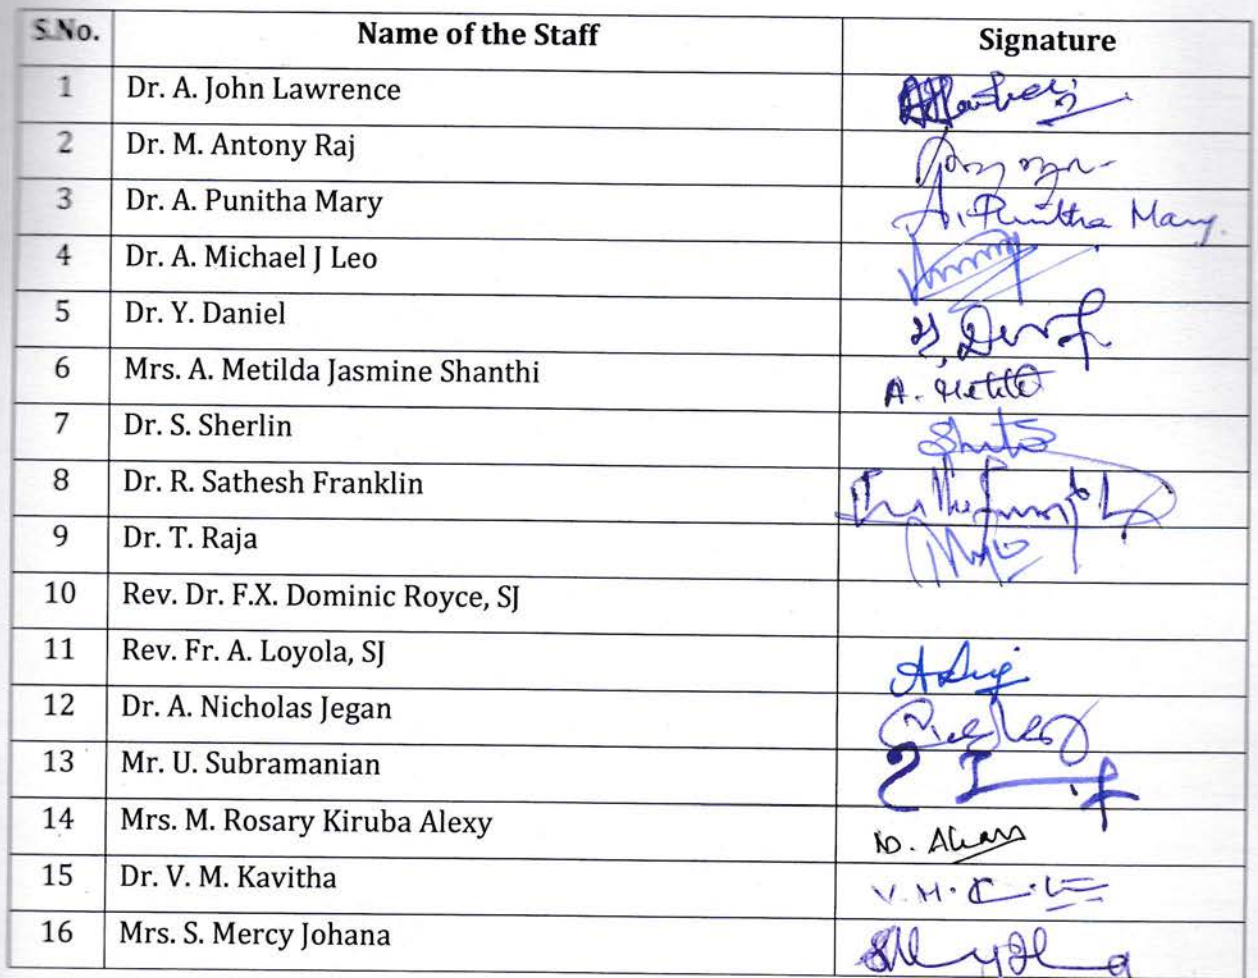 S.No. Name of the Staff Signature
1 Dr. A. John Lawrence
2 Dr. M. Antony Raj
3 Dr. A. Punitha Mary A. Punitha Mary.
4 Dr. A. Michael J Leo
5 Dr. Y. Daniel
6 Mrs. A. Metilda Jasmine Shanthi
7 Dr. S. Sherlin
8 Dr. R. Sathesh Franklin
9 Dr. T. Raja
10 Rev. Dr. F.X. Dominic Royce, SJ
11 Rev. Fr. A. Loyola, SJ
12 Dr. A. Nicholas Jegan
13 Mr. U. Subramanian
14 Mrs. M. Rosary Kiruba Alexy
15 Dr. V. M. Kavitha
16 Mrs. S. Mercy Johana